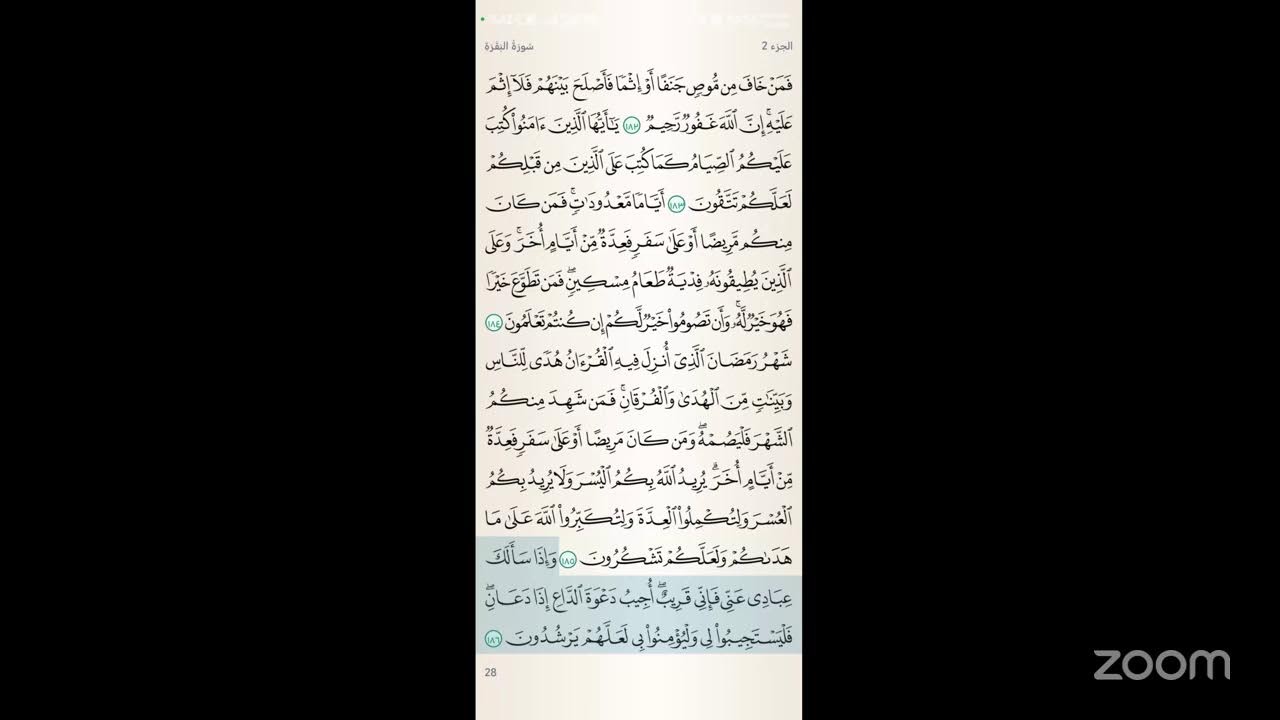 سُورَةُ البَقَرَةِ
الجزء 2
فَمَنْ خَافَ مِن مُّوصٍ جَنَفًا أَوْ إِثْمًا فَأَصْلَحَ بَيْنَهُمْ فَلَآ إِثْمَ
عَلَيْهِ ۚ إِنَّ ٱللَّهَ غَفُورٌ رَّحِيمٌ ١٨٢ يَـٰٓأَيُّهَا ٱلَّذِينَ ءَامَنُوا۟ كُتِبَ
عَلَيْكُمُ ٱلصِّيَامُ كَمَا كُتِبَ عَلَى ٱلَّذِينَ مِن قَبْلِكُمْ
لَعَلَّكُمْ تَتَّقُونَ ١٨٣ أَيَّامًا مَّعْدُودَٰتٍ ۚ فَمَن كَانَ
مِنكُم مَّرِيضًا أَوْ عَلَىٰ سَفَرٍ فَعِدَّةٌ مِّنْ أَيَّامٍ أُخَرَ ۚ وَعَلَى
ٱلَّذِينَ يُطِيقُونَهُۥ فِدْيَةٌ طَعَامُ مِسْكِينٍ ۖ فَمَن تَطَوَّعَ خَيْرًا
فَهُوَ خَيْرٌ لَّهُۥ ۚ وَأَن تَصُومُوا۟ خَيْرٌ لَّكُمْ إِن كُنتُمْ تَعْلَمُونَ ١٨٤
شَهْرُ رَمَضَانَ ٱلَّذِىٓ أُنزِلَ فِيهِ ٱلْقُرْءَانُ هُدًى لِّلنَّاسِ
وَبَيِّنَـٰتٍ مِّنَ ٱلْهُدَىٰ وَٱلْفُرْقَانِ ۚ فَمَن شَهِدَ مِنكُمُ
ٱلشَّهْرَ فَلْيَصُمْهُ ۖ وَمَن كَانَ مَرِيضًا أَوْ عَلَىٰ سَفَرٍ فَعِدَّةٌ
مِّنْ أَيَّامٍ أُخَرَ ۗ يُرِيدُ ٱللَّهُ بِكُمُ ٱلْيُسْرَ وَلَا يُرِيدُ بِكُمُ
ٱلْعُسْرَ وَلِتُكْمِلُوا۟ ٱلْعِدَّةَ وَلِتُكَبِّرُوا۟ ٱللَّهَ عَلَىٰ مَا
هَدَىٰكُمْ وَلَعَلَّكُمْ تَشْكُرُونَ ١٨٥ وَإِذَا سَأَلَكَ
عِبَادِى عَنِّى فَإِنِّى قَرِيبٌ ۖ أُجِيبُ دَعْوَةَ ٱلدَّاعِ إِذَا دَعَانِ ۖ
فَلْيَسْتَجِيبُوا۟ لِى وَلْيُؤْمِنُوا۟ بِى لَعَلَّهُمْ يَرْشُدُونَ ١٨٦
28
zoom